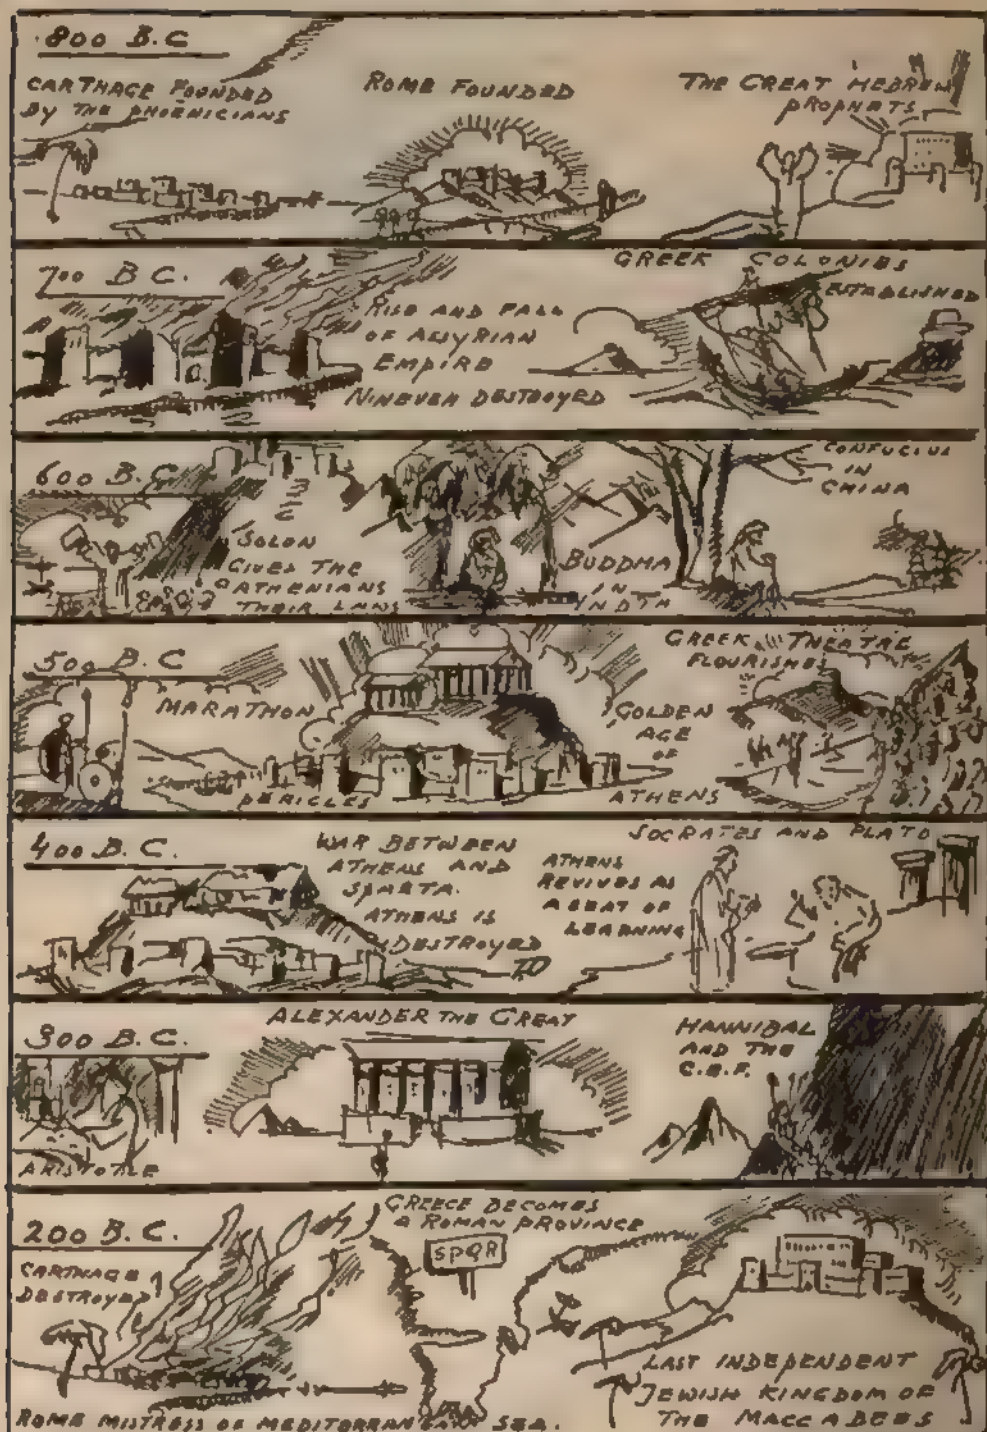 800 B.C
CARTHAGE FOUNDED
BY THE PHOENICIANS
ROME FOUNDED
THE GREAT HEBREW
PROPHETS
700 B C.
RISE AND FALL
OF ASSYRIAN
EMPIRE
NINEVEH DESTROYED
GREEK COLONIES
ESTABLISHED
600 B.C
SOLON
GIVES THE
ATHENIANS
THEIR LAWS
BUDDHA
IN
INDIA
CONFUCIUS
IN
CHINA
500 B.C
MARATHON
PERICLES
GOLDEN
AGE
OF
ATHENS
GREEK THEATRE
FLOURISHES
400 B.C.
WAR BETWEEN
ATHENS AND
SPARTA.
ATHENS IS
DESTROYED
ATHENS
REVIVES AS
A SEAT OF
LEARNING
SOCRATES AND PLATO
300 B.C.
ARISTOTLE
ALEXANDER THE GREAT
HANNIBAL
AND THE
200 B.C.
CARTHAGE
DESTROYED
GREECE BECOMES
A ROMAN PROVINCE
SPQR
LAST INDEPENDENT
JEWISH KINGDOM OF
THE MACCABEES
ROME MISTRESS OF MEDITERRANEAN SEA.